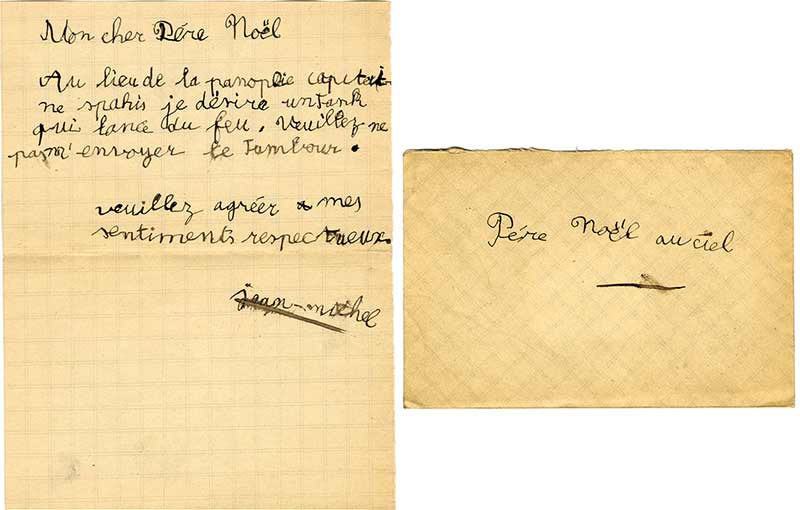 Mon cher Pére Noël
Au lieu de la panoplie capitai
ne spahis je désire untank
qui lance du feu. Veuillez ne
pasm'envoyer le Tambour.
veuillez agréer mes
sentiments respectueux.
jean-michel
Pére Noël au ciel